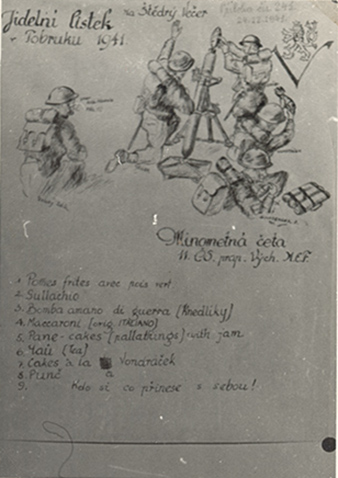 Jídelní lístek na Štědrý Večer
v Tobruku 1941.
24.12.1941
Minometná četa
11. ČS. prap. Vých. M.E.F.
1. Pomes frites avec pois vert
2. Sullachio
3. Bomba amano di guerra (Knedlíky)
4. Maccaroni (orig. ITALIANO)
5. Pane-cakes (pallatungs) with jam
6. Чай (Tea)
7. Cakes à la Vondráček
8. Punč a
9. Kdo si co přinese s sebou!